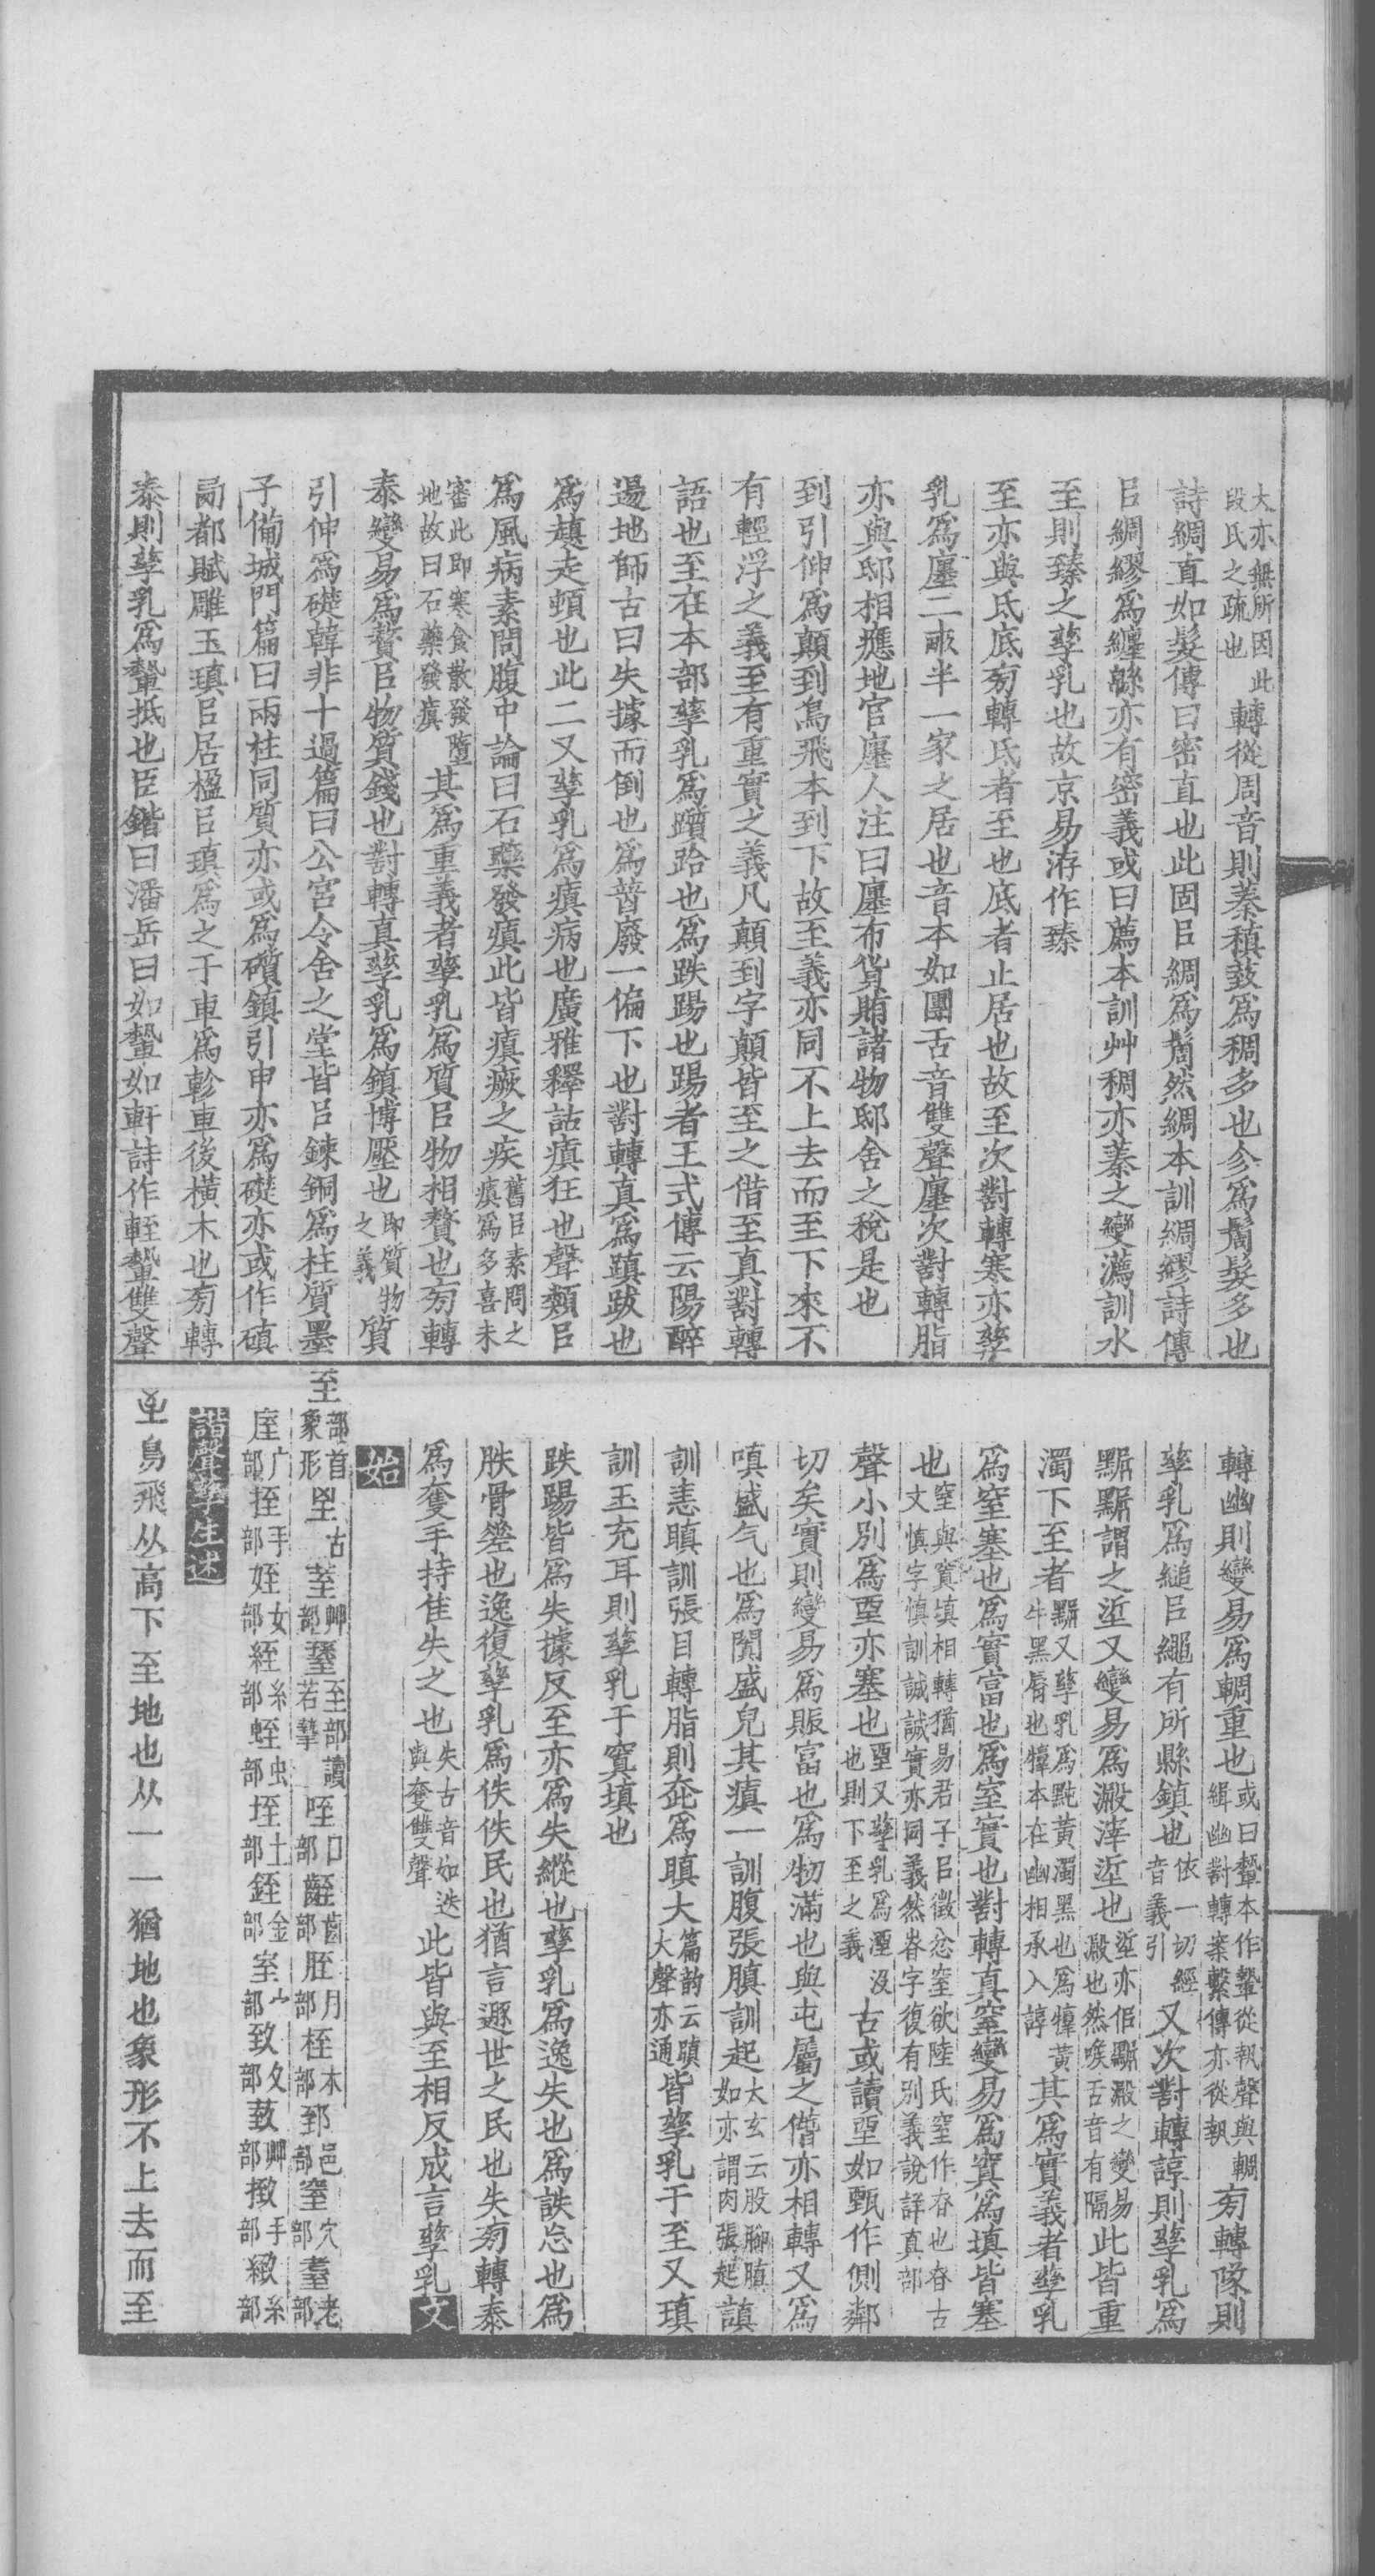 大亦無所因此
段氏之疏也
轉從周音則蓁稹𪎭為稠多也㐱為鬋髮多也
詩綢直如髮傳曰密直也此固㠯綢為鬋然綢本訓綢繆詩傳
㠯綢繆為纏緜亦有密義或曰薦本訓艸稠亦蓁之變瀳訓水
至則臻之孳乳也故京易洊作臻
至亦與氐底㫄轉氐者至也底者止居也故至次對轉寒亦孳
乳為廛二畝半一家之居也音本如團舌音雙聲廛次對轉脂
亦與邸相應地官廛人注曰廛布貨賄諸物邸舍之稅是也
到引伸為顛到鳥飛本到下故至義亦同不上去而至下來不
有輕浮之義至有重實之義凡顛到字顛皆至之借至真對轉
語也至在本部孳乳為躓跲也為跌踼也踼者王式傳云陽醉
逿地師古曰失據而倒也為朁廢一偏下也對轉真為蹎跋也
為趚走頓也此二又孳乳為瘨病也廣雅釋詁瘨狂也聲類㠯
為風病素問腹中論曰石藥發瘨此皆瘨癥之疾
舊㠯素問之
瘨為多喜未
審此即寒食散發墮
地故曰石藥發瘨
其為重義者孳乳為質㠯物相贅也㫄轉
泰變易為贅㠯物質錢也對轉真孳乳為鎮博壓也
即質物
之義
質
引伸為礎韓非十過篇曰公宮令舍之堂皆㠯鍊銅為柱質墨
子備城門篇曰兩柱同質亦或為礩鎮引申亦為礎亦或作磌
南都賦雕玉瑱㠯居楹㠯瑱為之于車為軫車後橫木也㫄轉
泰則孳乳為𨎌抵也臣鍇曰潘岳曰如𨎌如軒詩作輊𨎌雙聲
轉幽則變易為輖重也
或曰𨎌本作摯從執聲與輖
緝幽對轉案繫傳亦從執
㫄轉隊則
孳乳為縋㠯繩有所縣鎮也
依一切經
音義引
又次對轉諄則孳乳為
黰黰謂之垽又變易為澱滓垽也
垽亦佀黰澱之變易
澱也然喉舌音有隔
此皆重
濁下至者
黰又孳乳為黗黃濁黑也為犉黃
牛黑脣也犉本在幽相承入諄
其為實義者孳乳
為窒塞也為實富也為室實也對轉真窒變易為窴為填皆塞
也
窒與窴填相轉猶易君子㠯徵忿窒欲陸氏窒作昚也昚古
文慎字慎訓誠誠實亦同義然昚字復有別義說詳真部
聲小別為垔亦塞也
垔又孳乳為湮沒
也則下至之義
古或讀垔如甄作側鄰
切矣實則變易為賑富也為牣滿也與屯屬之僭亦相轉又為
嗔盛气也為闐盛皃其瘨一訓腹張䐜訓起
太玄云股腳䐜
如亦謂肉張起
謓
訓恚瞋訓張目轉脂則𡗗為瞋大
篇韵云瞋
大聲亦通
皆孳乳于至又瑱
訓玉充耳則孳乳于窴填也
跌踼皆為失據反至亦為失縱也孳乳為逸失也為詄忘也為
胅骨差也逸復孳乳為佚佚民也猶言遯世之民也失㫄轉泰
為奪手持隹失之也
失古音如迭
與奪雙聲
此皆與至相反成言孳乳文
始
至
部首
象形
𡊿
古
荎
艸部
臸
至部讀
若摯
咥
口部
𪘪
齒部
胵
月部
桎
木部
郅
邑部
窒
穴部
耋
老部
庢
广部
挃
手部
姪
女部
絰
糸部
蛭
虫部
垤
土部
銍
金部
室
宀部
致
夊部
䓡
艸部
㨖
手部
緻
糸部
諧聲孳生述
𡉉鳥飛从高下至地也从一一猶地也象形不上去而至